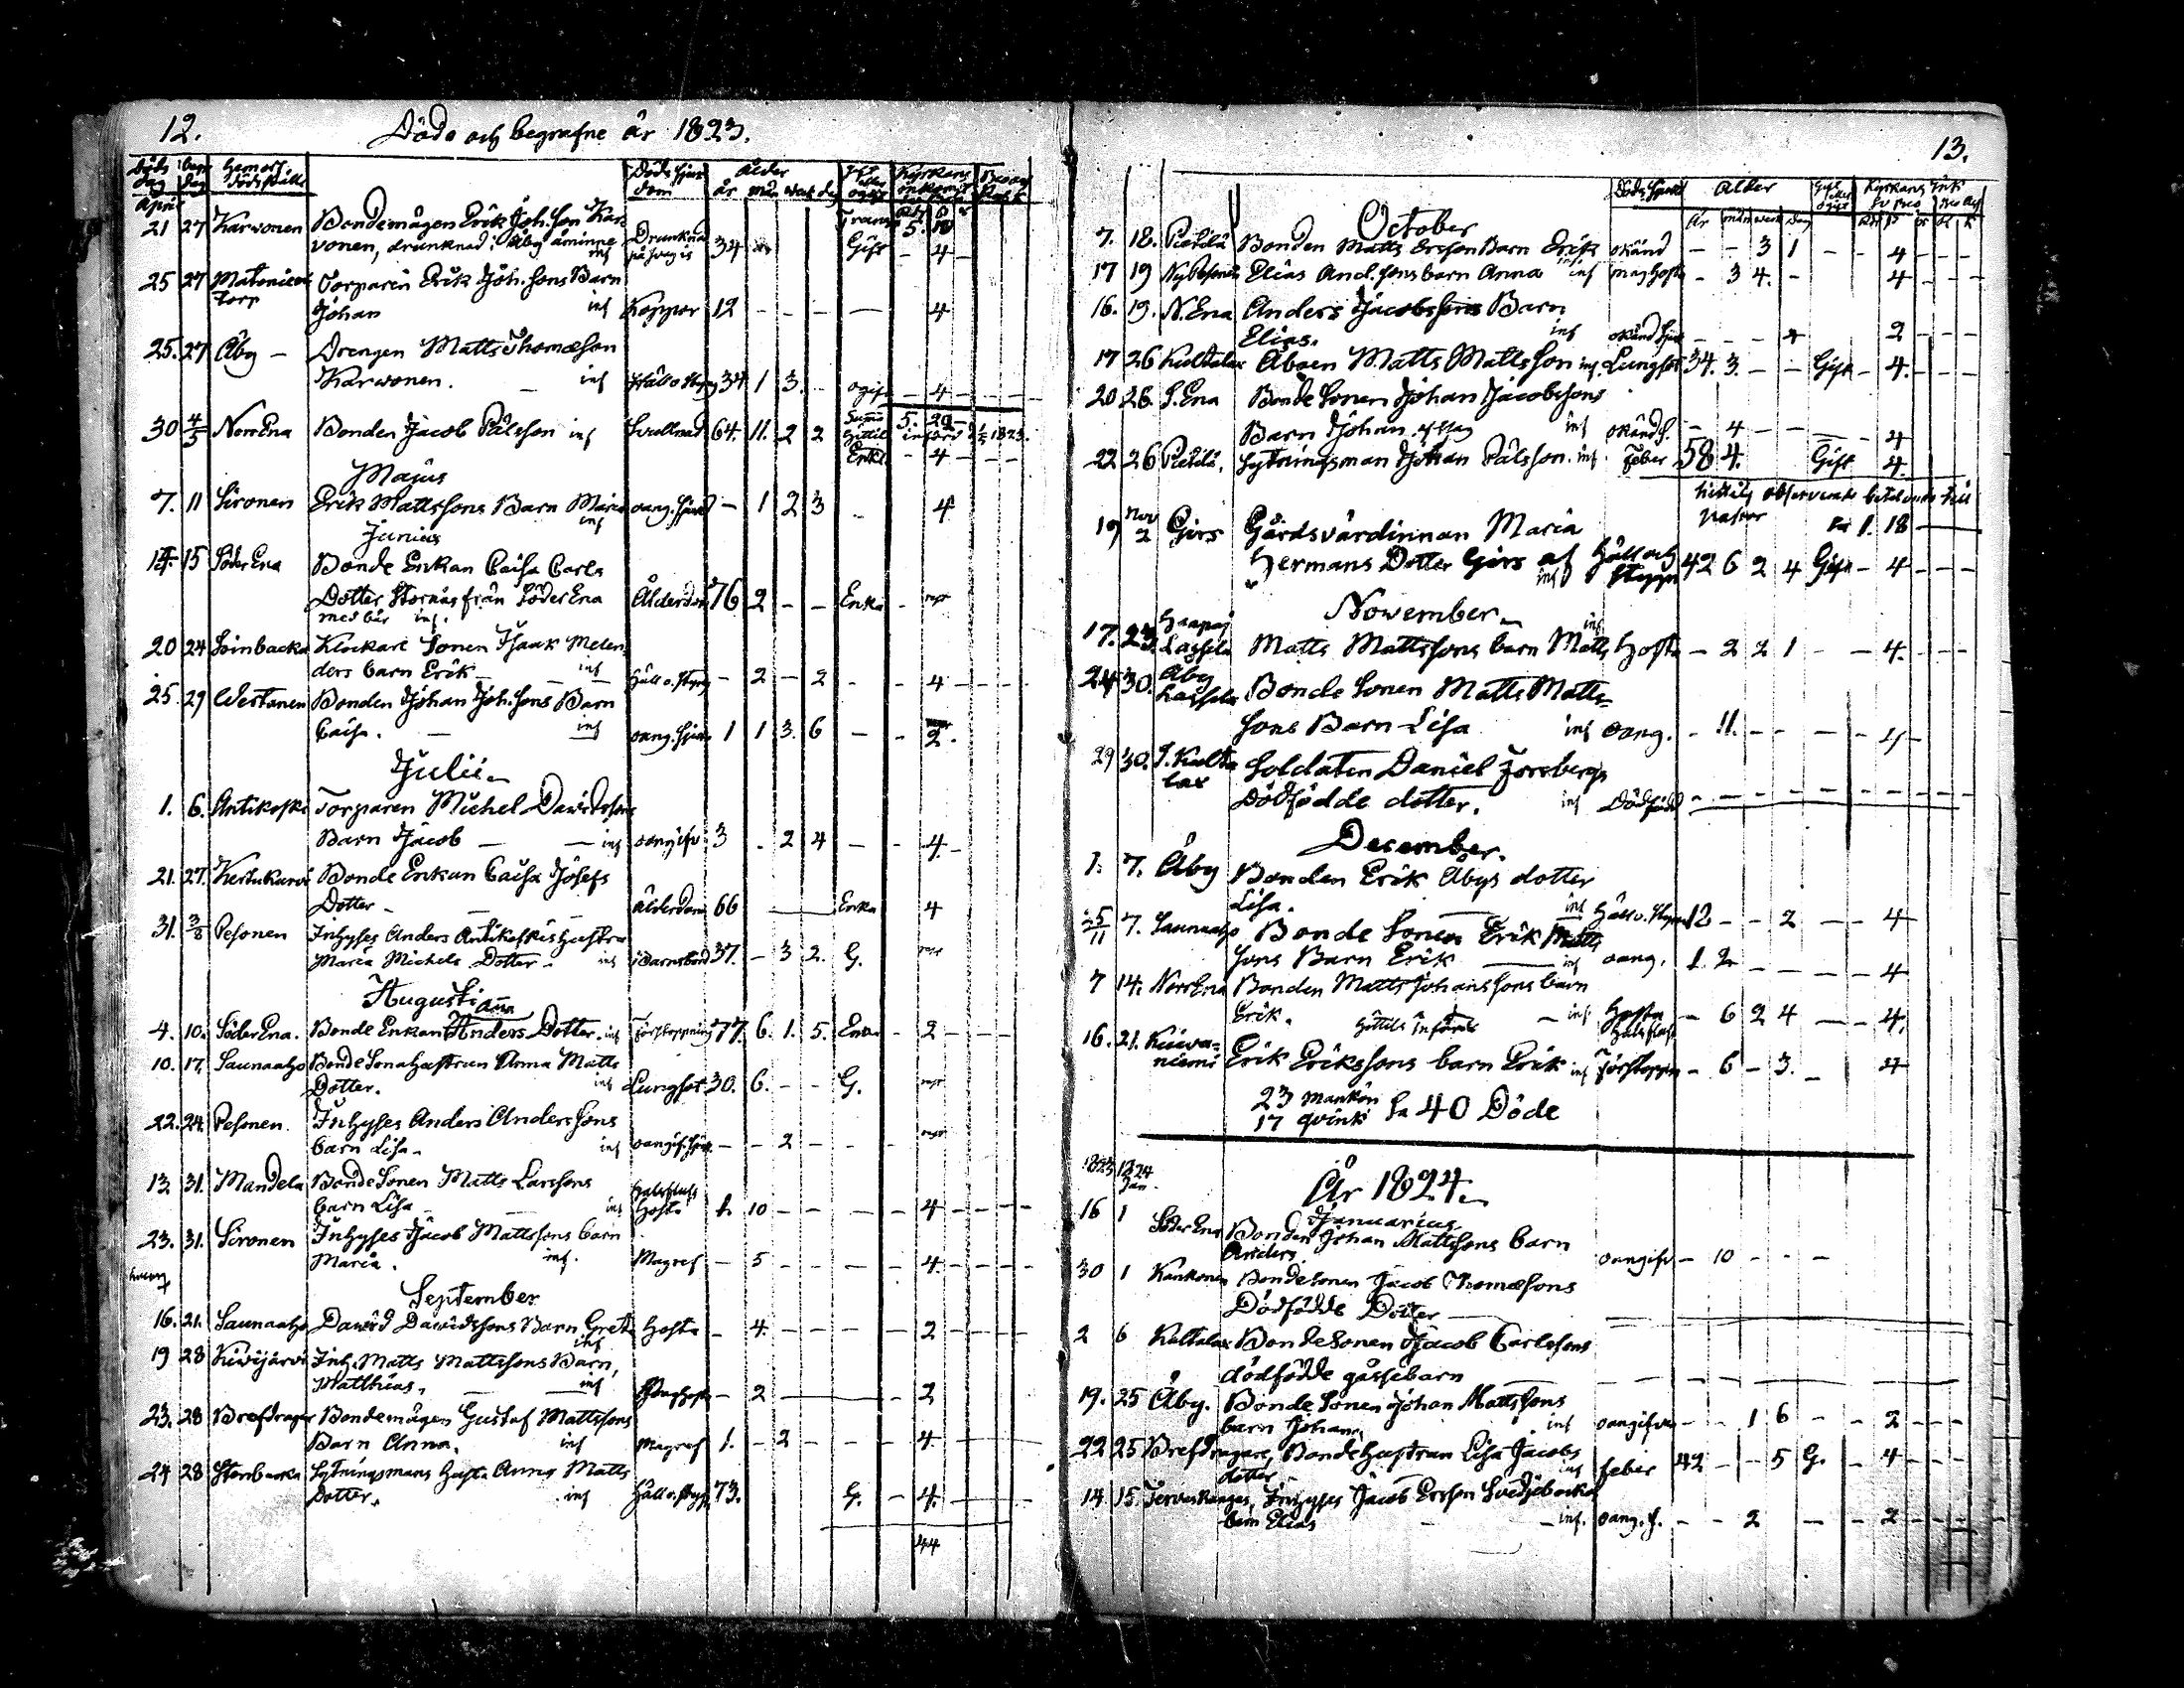 12.
Döde och begrafne år 1823.
Döds dag
begr dag
Hemort
Dödsställe
Döds sjuk dom
ålder
år mån veck dag
Gift eller ogift
Kyrkans inkomst
April
21 27 Karvonen Bondemågen Erik Joh.son Kar-
vonen, drunknad i Åby åminne Drunknad 34 Gift - 4 -
25 27 Torp Torparen Erik Joh.sons Barn
Johan inf Koppor 12 - - - — 4
25. 27 Åby — Drengen Matts Thomæson
Karvonen. — inf Håll o. styng 34 1 3. - ogift - 4 - -
30 4/5 NorrEna Bonden Jacob Pålsson inf Svullnad 64. 11. 2 2 Enkl. - 4 - - -
Majus
7. 11 Sironen Erik Mattssons Barn Maria inf oang. sjukd - 1 2 3 - 4
Junius
14. 15 Söder Ena Bonde Enkan Caisa Carls
Dotter Stornäs från Söder Ena Ålderdom 76 2 - - Enka -
inf.
20 24 Klockare Sonen Isaak Melen-
ders barn Erik — inf Håll o. styng - 2 - 2 - - 4 - - - -
25. 29 Westanen Bonden Johan Joh.sons Barn
Caisa. — inf oang. sjukd 1 1 3. 6 — - 2.
Julii
1. 6. Antikoski Torparen Michel Davidssons
Barn Jacob — — inf oangifv. 3 - 2 4 - - 4. -
21. 27. Bonde Enkan Caisa Josefs
Dotter — Ålderdom 66 —— Enka 4
31. 3/8 Pesonen Inhyses Anders Antikoskis Hustru
Maria Michels Dotter — inf i Barnsbörd 37. - 3 2. G.
Augusti
Anna
4. 10. Söder Ena. Bonde Enkan Anders Dotter. inf Förstoppning 77. 6. 1. 5. Enka - 2 - - - -
10. 17. Saunaaho Bonde Sonahustrun Anna Matts
Dotter. inf Lungsot 30. 6. - - G.
22. 24. Pesonen Inhyses Anders Anderssons
barn Lisa — inf oangif. sjuk - - 2 - - -
13 31. Mandela BondeSonen Matts Larssons
barn Lisa — inf Hosta 1. 10 - - - - 4 - - - -
23. 31. Sironen Inhyses Jacob Mattssons barn
Maria. inf. Magref - 5 - - - - 4. - - -
September
16. 21. Saunaaho David Davidssons Barn Greta inf Hosta - 4. - - - - 2 - - - -
19 28 Kiwijärvi Inh. Matts Mattssons Barn,
Matthias. — inf - 2 —— - 2
23. 28 Brefdragar Bondemågen Gustaf Mattssons
Barn Anna. inf Magref 1. - 2 - - - 4.
24 28 Stenbacka Sytningsmans Hustr. Anna Matts
Dotter. inf Håll o. styg. 73. G. - 4.
44
13.
Döds sjukd
Ålder
Gift eller ogift
Kyrkans Ink
år mån veck dag
October
7. 18. Pietilä Bonden Matts Ersson Barn Erik inf okänd - - 3 1 - - 4 - - -
17 19 Elias And.sons barn Anna inf - 3 4. - 4 - - -
16. 19. N. Ena Anders Jacobssons Barn
Elias. inf okänd sjuk - - - 4 2 - - -
17 26 Kultalax Åboen Matts Mattsson inf. Lungsot 34. 3. - - Gift - 4. - - -
20 26. S. Ena Bonde Sonen Johan Jacobssons
Barn Johan inf okänd s. - 4 - - - 4
22 26 Pietilä. Sytningsman Johan Pålsson. inf Feber 58 4. Gift 4.
1. 18 —
19 Nov 2 Girs Gårdsvärdinnan Maria
Hermans Dotter Girs af Håll och
inf styng 42 6 2 4 Gift - 4 - - -
November
17. 23. Matts Mattssons barn Matts inf Hosta - 2 2 1 - - 4. - - -
24 30. Åby Bonde Sonen Matts Matts-
sons Barn Lisa inf oang. - 11. - - — - 4 -
29 30. S. Kulta
lax Soldaten Daniel Forsbergs
Dödfödde dotter. inf Dödfödd - - - - - - -
December.
1. 7. Åby Bonden Erik Åbys dotter
Lisa. — inf Håll o. styng 12 - - 2 - - 4
25/11 7. Saunaaho Bonde Sonen Erik Matts
sons Barn Erik — inf oang. 1. 2 - - - 4
7 14. NorrEna Bonden Matts Johanssons barn
Erik. — inf Hosta - 6 2 4 — - 4.
Hittils införde
16. 21. Kuiva-
niemi Erik Erikssons barn Erik inf Förstoppn - 6 - 3. - 4
23 mankön
17 qvink: Sa 40 Döde
1823 1824
Jan.
År 1824.
Januarius
16 1 Söder Ena Bonden Johan Mattssons barn
Anders oangifv - 10 - - -
30 1 Kankonen Bondesonen Jacob Thomæsons
Dödfödde Dotter —
2 6 Kultalax BondeSonen Jacob Carlssons
dödfödde gåssebarn
19. 25 Åby. Bonde Sonen Johan Mattssons
barn Johan. inf oangifven - - 1 6 - - 2 - - -
22 25 Brefdragare, BondeHustrun Lisa Jacobs
dotter — inf feber 42 - - 5 G. - 4 - - -
14 15. Inhyses Jacob Ersson Svedjebacka
barn Elias — inf. oang. s. - - 2 — - 2 - - -